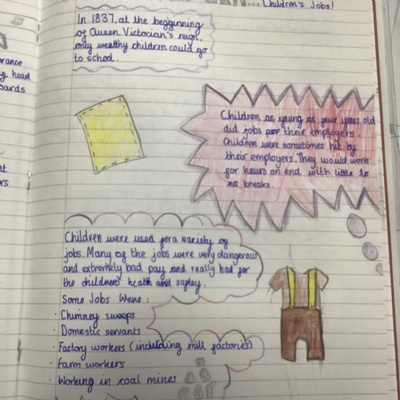 Children's Jobs!
In 1837, at the beggining
of Queen Victorian's reign,
only wealthy children could go
to school.
Children as young as four years old
did jobs for their employers.
Children were sometimes hit by
their employers. They would work
for hours on end with little to
no breaks.
Children were used for a variety of
jobs. Many of the jobs were very dangerous
and extremely bad pay and really bad for
the childrens' health and saftey.
Some Jobs Were:
· Chimney sweeps
· Domestic servants
· Factory workers (including mill factories)
· Farm workers
· Working in coal mines